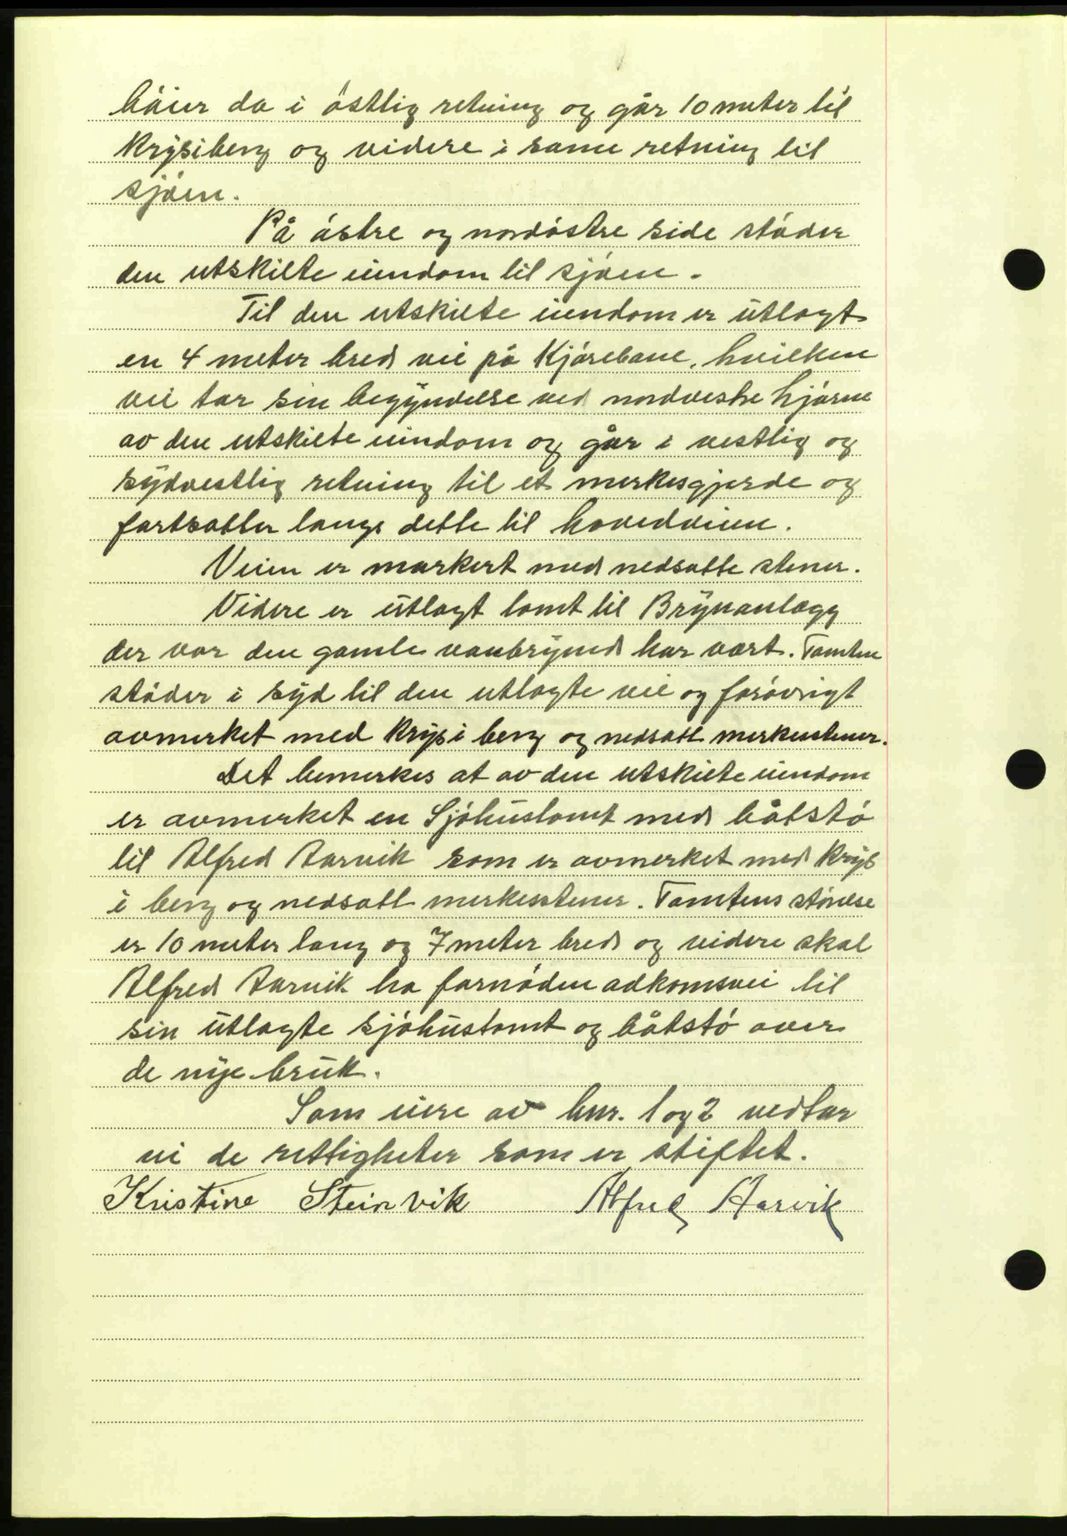 bøier da i østlig retning og går 10 meter til
krysiberg og videre i same retning til
sjøen.
På østre og nordøstre side støder
den utskilte eiendom til sjøen.
Til den utskilte eiendom er utlagt
en 4 meter bred vei på Kjørebane, hvilken
vei tar sin begyndelse ved nordvestre hjørne
av den utskilte eiendom og går i vestlig og
sydvestlig retning til et merkesgjerde og
fortsatter langs dette til hovedveien.
Veien er markert med nedsatte stener.
Videre er utlagt tomt til Brynanlegg
der var den gamle vanbryned har vært. Tomten
støder i syd til den utlagte vei og forøvrigt
avmerket med krys i berg og nedsatt merkestener.
Det bemerkes at av den utskilte eiendom
er avmerket en Sjøhustomt med båtstø
til Alfred Aarvik som er avmerket med krys
i berg og nedsatt merkesstener. Tomtens størelse
er 10 meter lang og 7 meter bred og videre skal
Alfred Aarvik ha fornøden adkomsvei til
sin utlagte sjøhustomt og båtstø over
de nye bruk.
Som eiere av bnr. 1 og 2 vedtar
vi de rettigheter som er stiftet.
Kristine Steinvik Alfred Aarvik